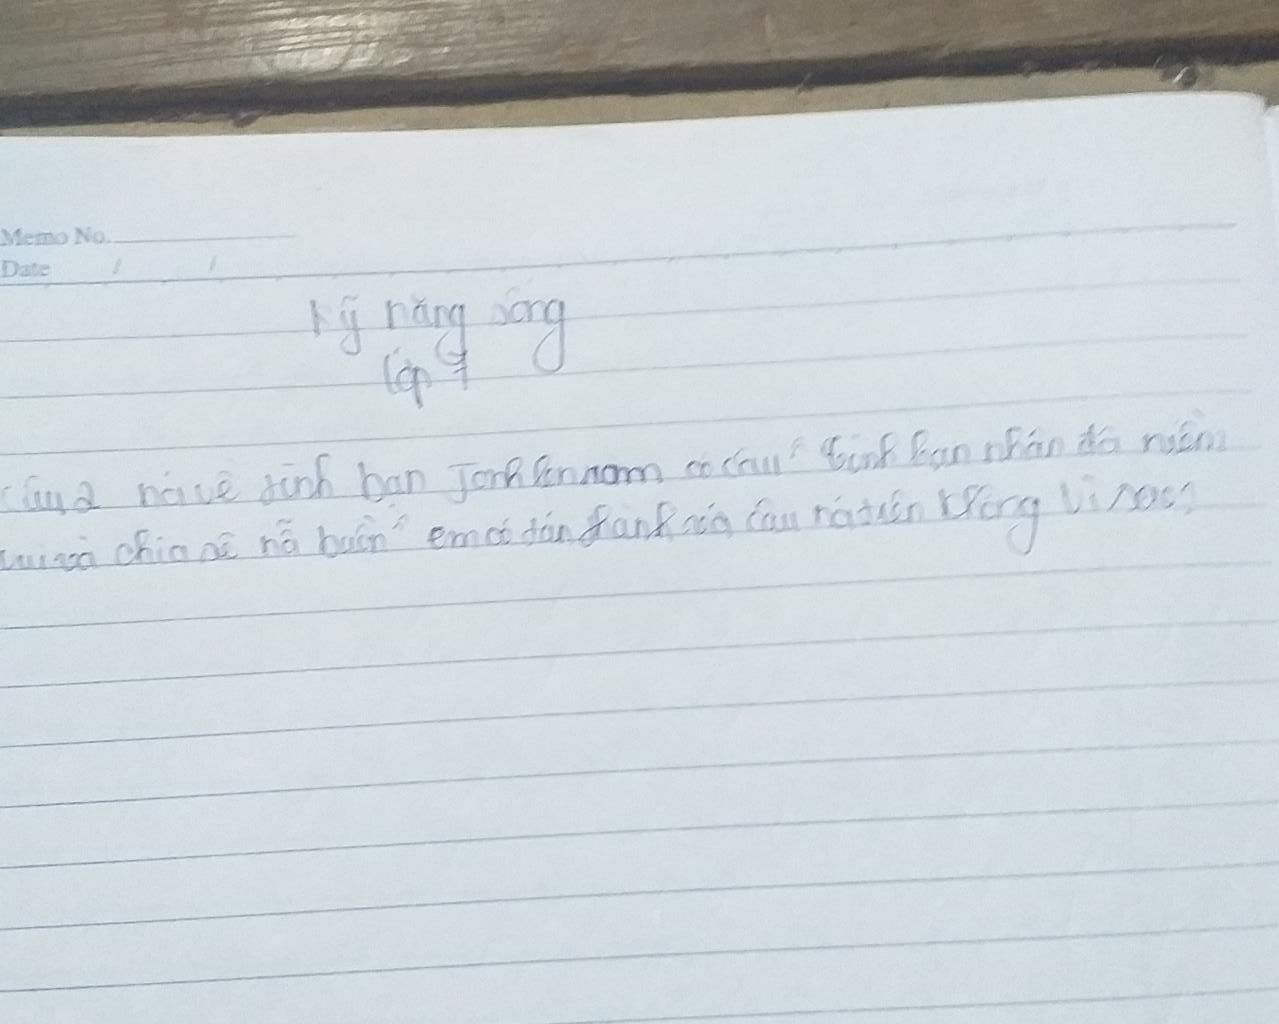 Memo No.
Date / /
Kỹ năng sống
lớp 7
Câu 2 nói về tình bạn có câu " tình bạn nhân đôi niềm
vui và chia sẻ nỗi buồn " em có tán thành với câu nói trên không Vì sao?